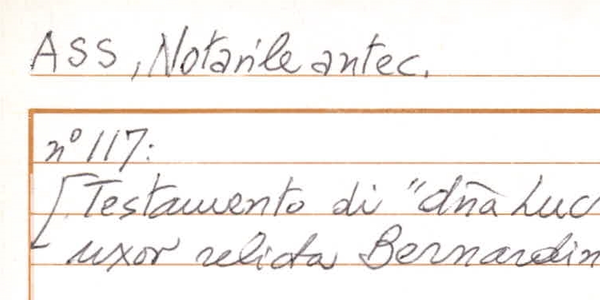 ASS, Notarile antec.
n° 117:
[Testamento di "dña Luc
uxor relicta Bernardin